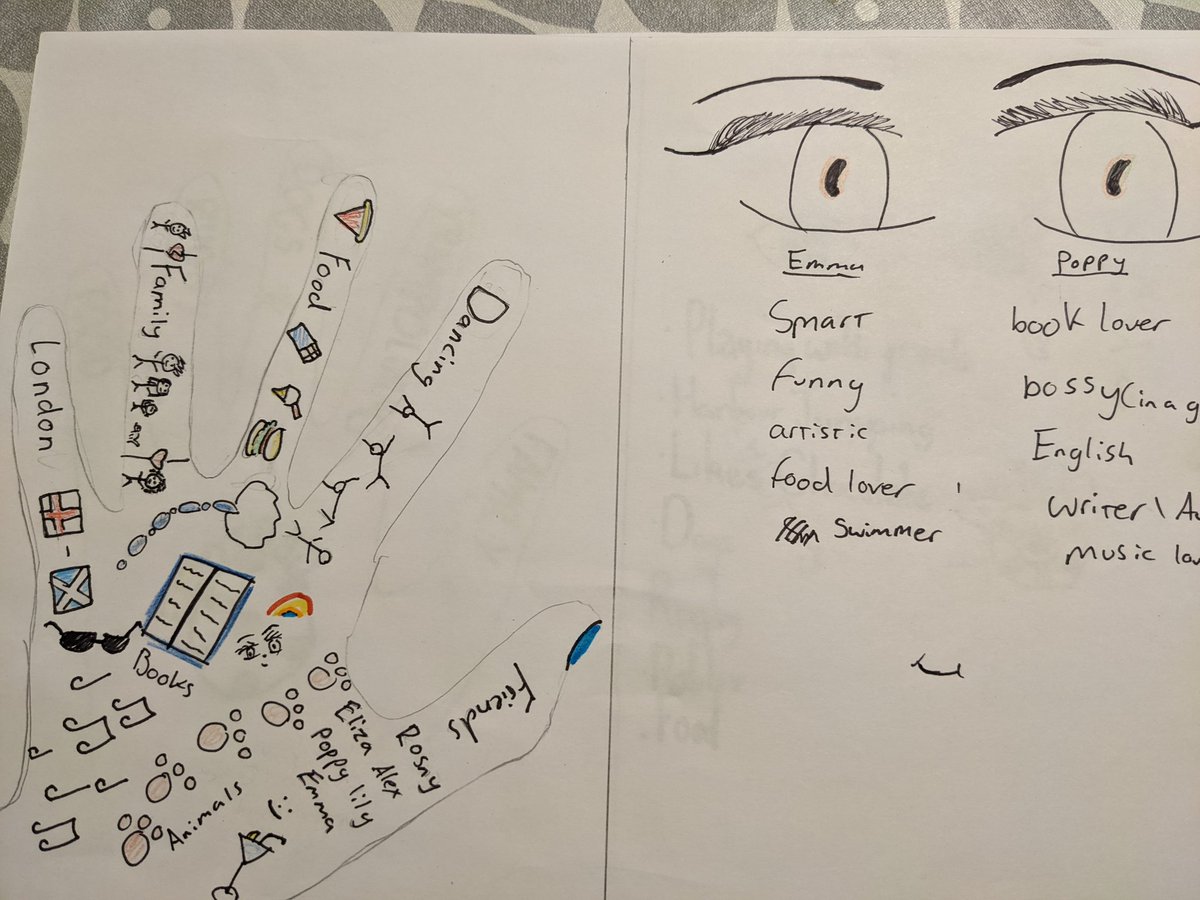 London
Family
Food
Dancing
Friends
Rosny
Eliza Alex
Poppy lily
Emma
Books
Animals
Emma
Smart
funny
artistic
food lover
Swimmer
Poppy
book lover
bossy (in a g
English
Writer\ Au
music lov